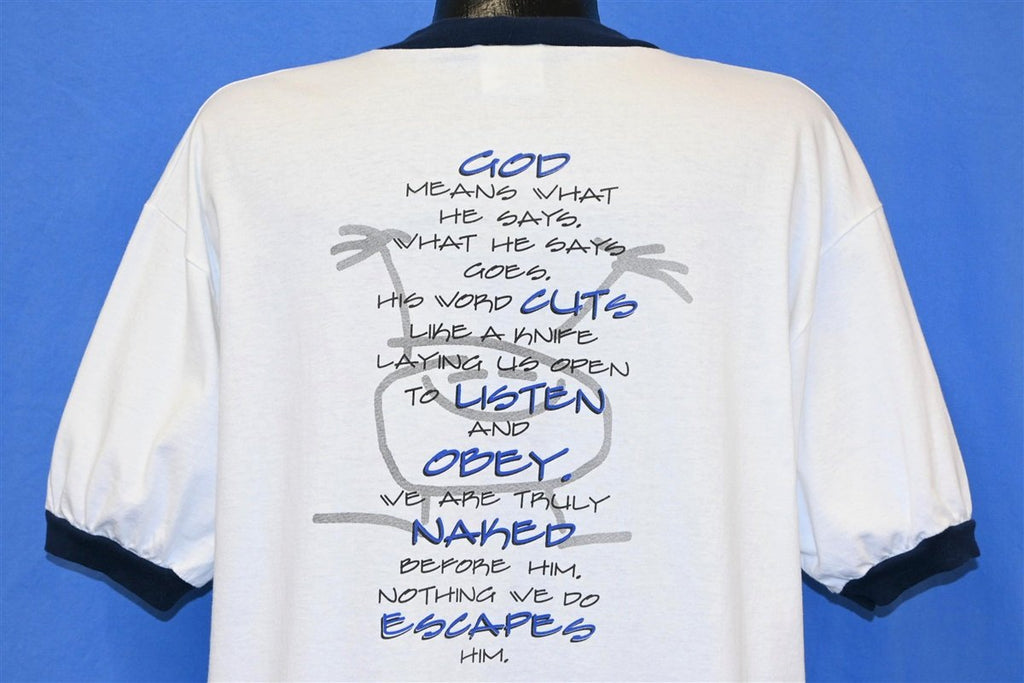 GOD
MEANS WHAT
HE SAYS.
WHAT HE SAYS
GOES.
HIS WORD CUTS
LIKE A KNIFE
LAYING US OPEN
TO LISTEN
AND
OBEY.
WE ARE TRULY
NAKED
BEFORE HIM.
NOTHING WE DO
ESCAPES
HIM.